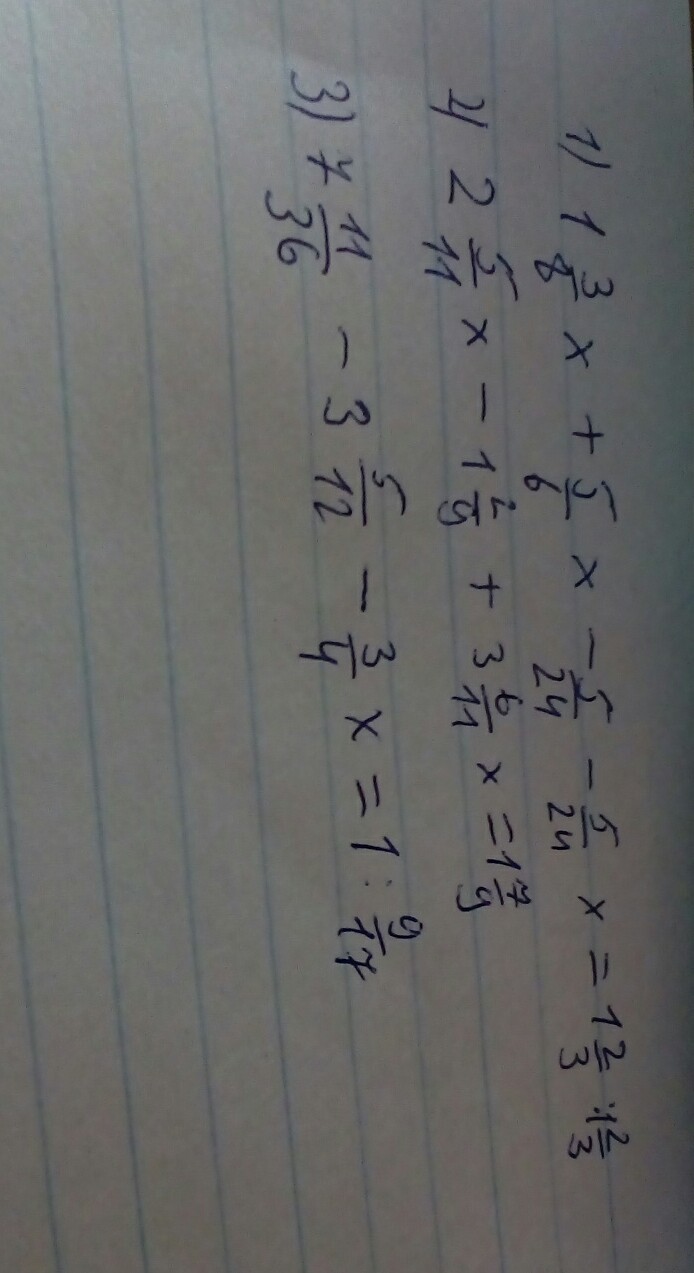 1) 1 3/8 x + 5/6 x - 5/24 - 5/24 x = 1 2/3 : 1 2/3
2) 2 5/11 x - 1 2/9 + 3 6/11 x = 1 7/9
3) 7 11/36 - 3 5/12 - 3/4 x = 1 : 9/17